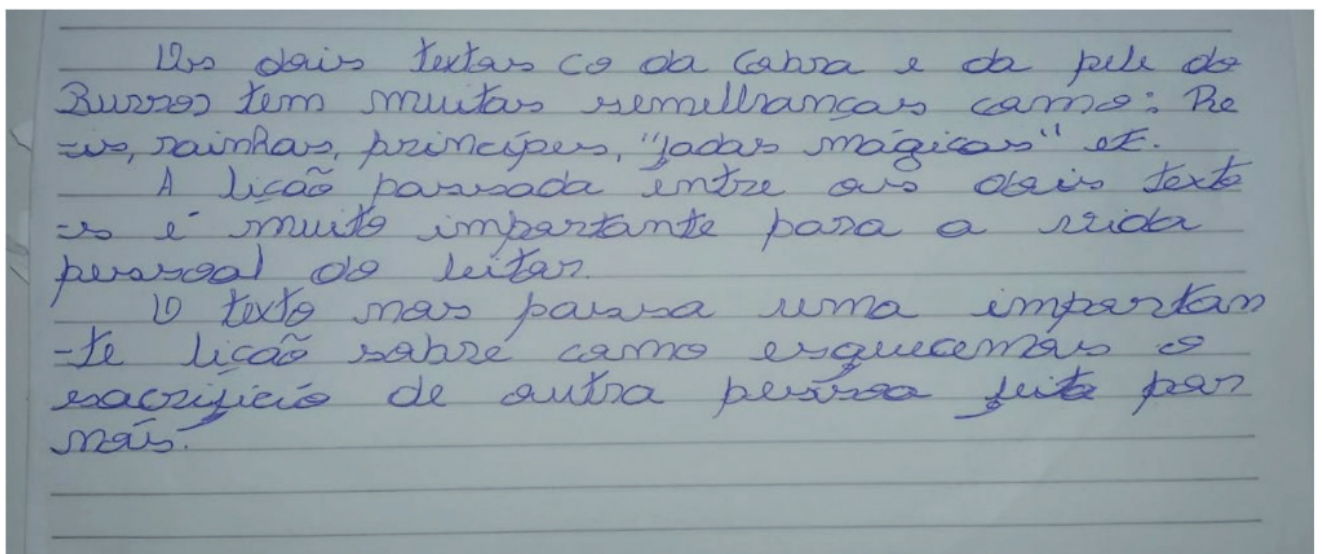 Os dois textos (o da Cabra e da pele do
Burro) tem muitas semelhanças como: Re
-is, rainhas, principes, "fadas mágicas" etc.
A lição passada entre os dois texto
-s é muito importante para a vida
pessoal do leitor.
O texto nos passa uma importan
-te lição sobre como esquecemos o
sacrifício de outra pessoa feito por
nós.